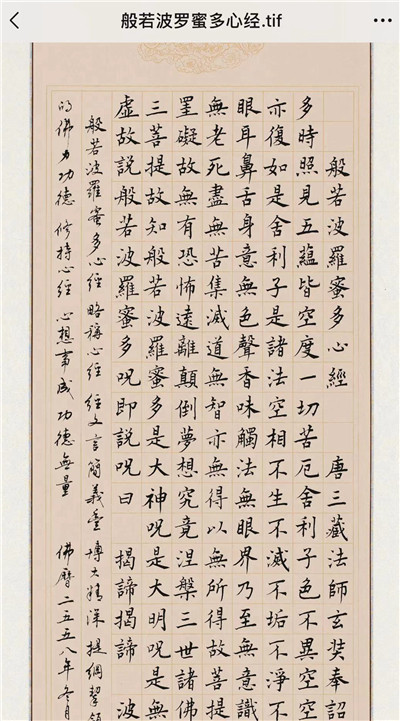 般若波罗蜜多心经.tif
般若波羅蜜多心經 唐三藏法師玄奘奉詔
多時照見五蘊皆空度一切苦厄舍利子色不異空空
亦復如是舍利子是諸法空相不生不滅不垢不淨不
眼耳鼻舌身意無色聲香味觸法無眼界乃至無意識
無老死盡無苦集滅道無智亦無得以無所得故菩提
罣礙故無有恐怖遠離顛倒夢想究竟涅槃三世諸佛
三菩提故知般若波羅蜜多是大神呪是大明呪是無
虛故説般若波羅蜜多呪即説呪曰 揭諦揭諦 波
般若波羅蜜多心經 略稱心經 經文言簡義豐 博大精深 提綱挈領
的佛力功德 修持心經 心想事成功德無量 佛曆二五五八年冬月